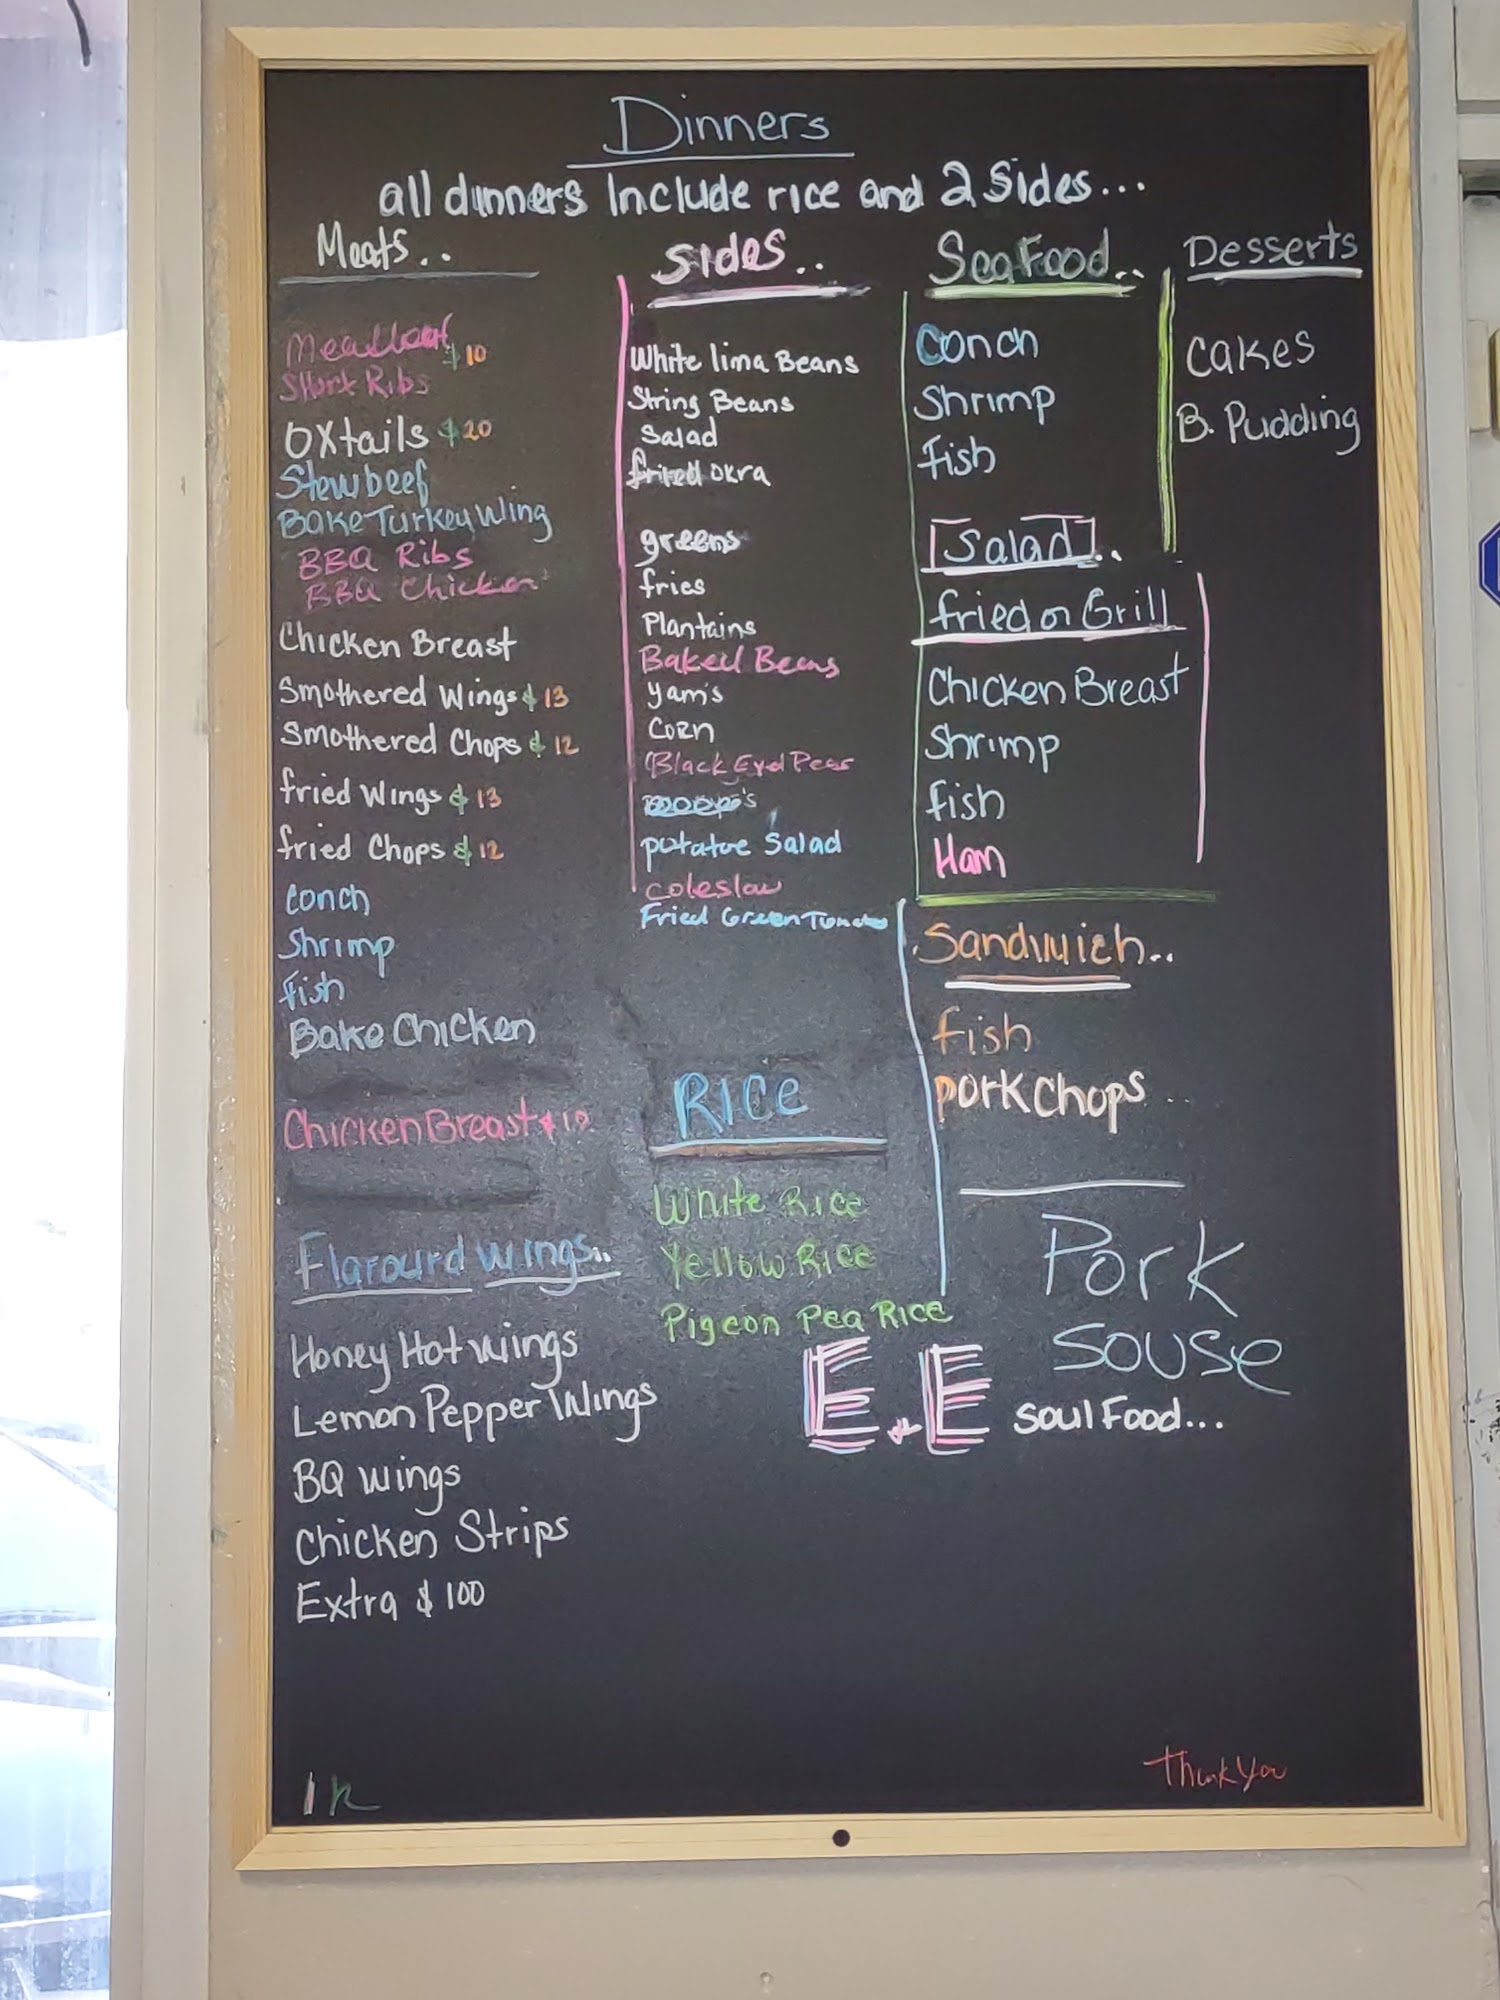 Dinners
all dinners Include rice and 2 Sides...
Meats..
Meatloaf $10
Short Ribs
Oxtails $20
Stew beef
Bake Turkey Wing
BBQ Ribs
BBQ Chicken
Chicken Breast
Smothered Wings $13
Smothered Chops $12
fried Wings $13
fried Chops $12
Conch
Shrimp
Fish
Bake Chicken
Chicken Breast $10
Flarourd wings..
Honey Hot wings
Lemon Pepper Wings
BQ wings
Chicken Strips
Extra $100
Sides..
White lima Beans
String Beans
Salad
fried okra
greens
fries
Plantains
Baked Beans
yam's
Corn
Black Eyd Peas
potatoe Salad
coleslaw
Fried Green Tomatoes
RICE
White Rice
Yellow Rice
Pigeon Pea Rice
SeaFood..
Conch
Shrimp
Fish
Salad..
fried or Grill
Chicken Breast
Shrimp
fish
Ham
Sandwich..
fish
pork Chops
Pork
Souse
E.E Soul Food...
Desserts
Cakes
B. Pudding
Thank you